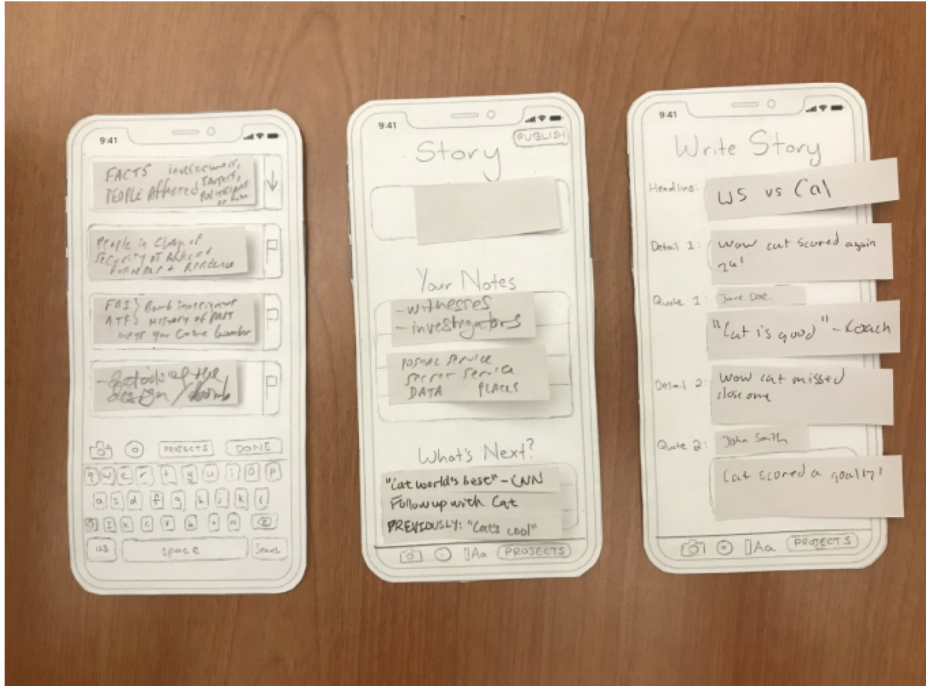 9:41
FACTS investment,
PEOPLE Affected TARGETS,
People in Charge of
Security at
Residence
FBI } Bomb
ATF } History of PAST
bomber
design / bomb
PROJECTS DONE
q w e r t y u i o p
a s d f g h k l
z x c v b n m
123 space Search
9:41
PUBLISH
Story
Your Notes
- witnesses
- investigators
POSTAL SERVICE
secret service
DATA PLACES
What's Next?
"Cat world's best" - CNN
Follow up with Cat
PREVIOUSLY: "Cat's cool"
Aa PROJECTS
9:41
Write Story
Headline: WS vs Cal
Detail 1: Wow cat scored again
Quote 1: Jane Doe
"Cat is good" - Koach
Detail 2: Wow cat missed
close one
Quote 2: John Smith
Cat scored a goal
Aa PROJECTS